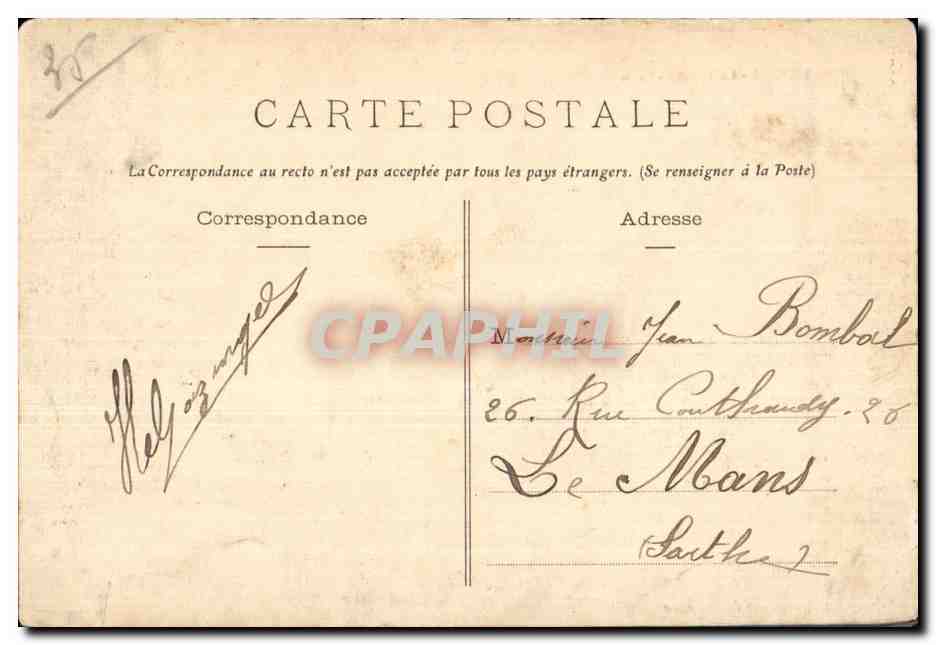 35
CARTE POSTALE
La Correspondance au recto n'est pas acceptée par tous les pays étrangers. (Se renseigner à la Poste)
Correspondance
Adresse
CPAPHIL
Monsieur Jean Bombal
26. Rue 26
Le Mans
(Sarthe)